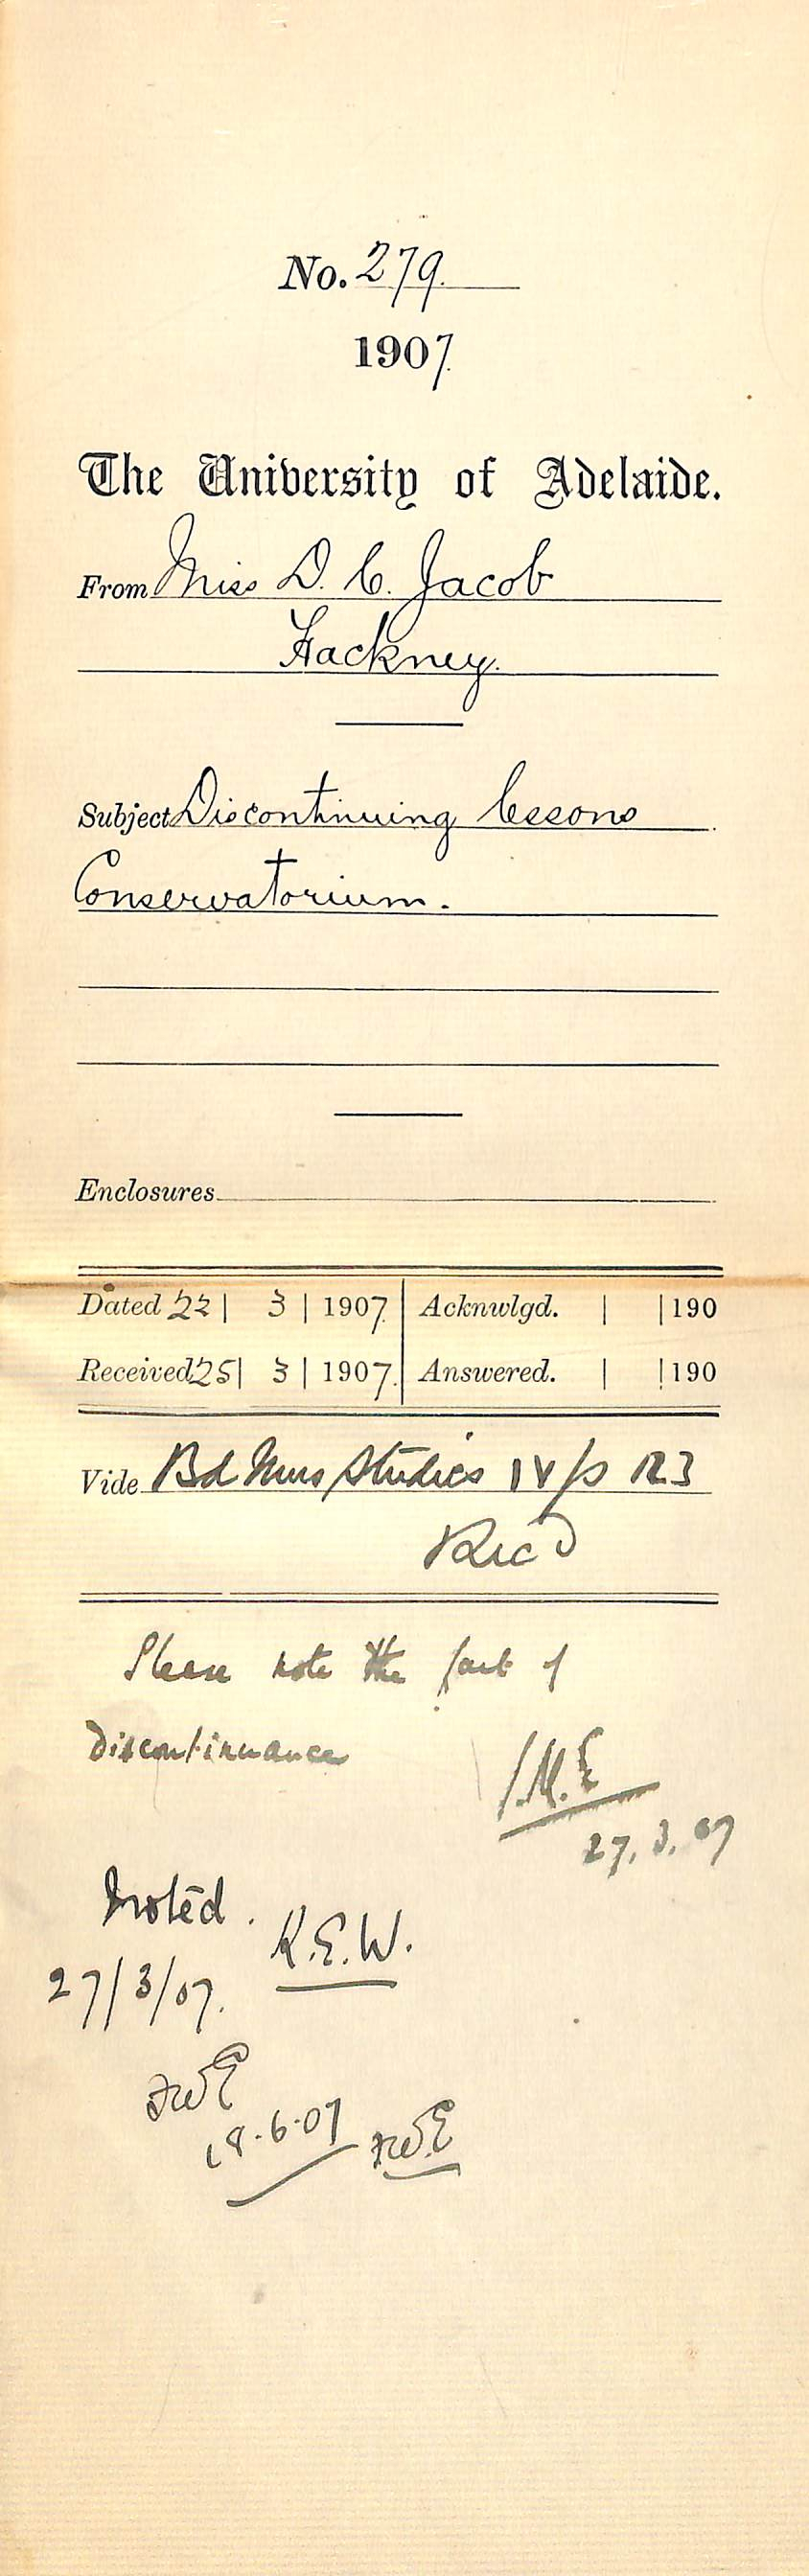 No. 279.
1907.
The University of Adelaide.
From Miss D. C. Jacob
Hackney.
Subject Discontinuing lessons
Conservatorium.
Enclosures
Dated 22 | 3 | 1907. Acknwlgd. | | 190
Received 25 | 3 | 1907. Answered. | | 190
Vide Bd Mus Studies IV p 123
Recd
Please note the fact of
discontinuance
27.3.07
Noted. R.E.W.
27/3/07.
18.6.07